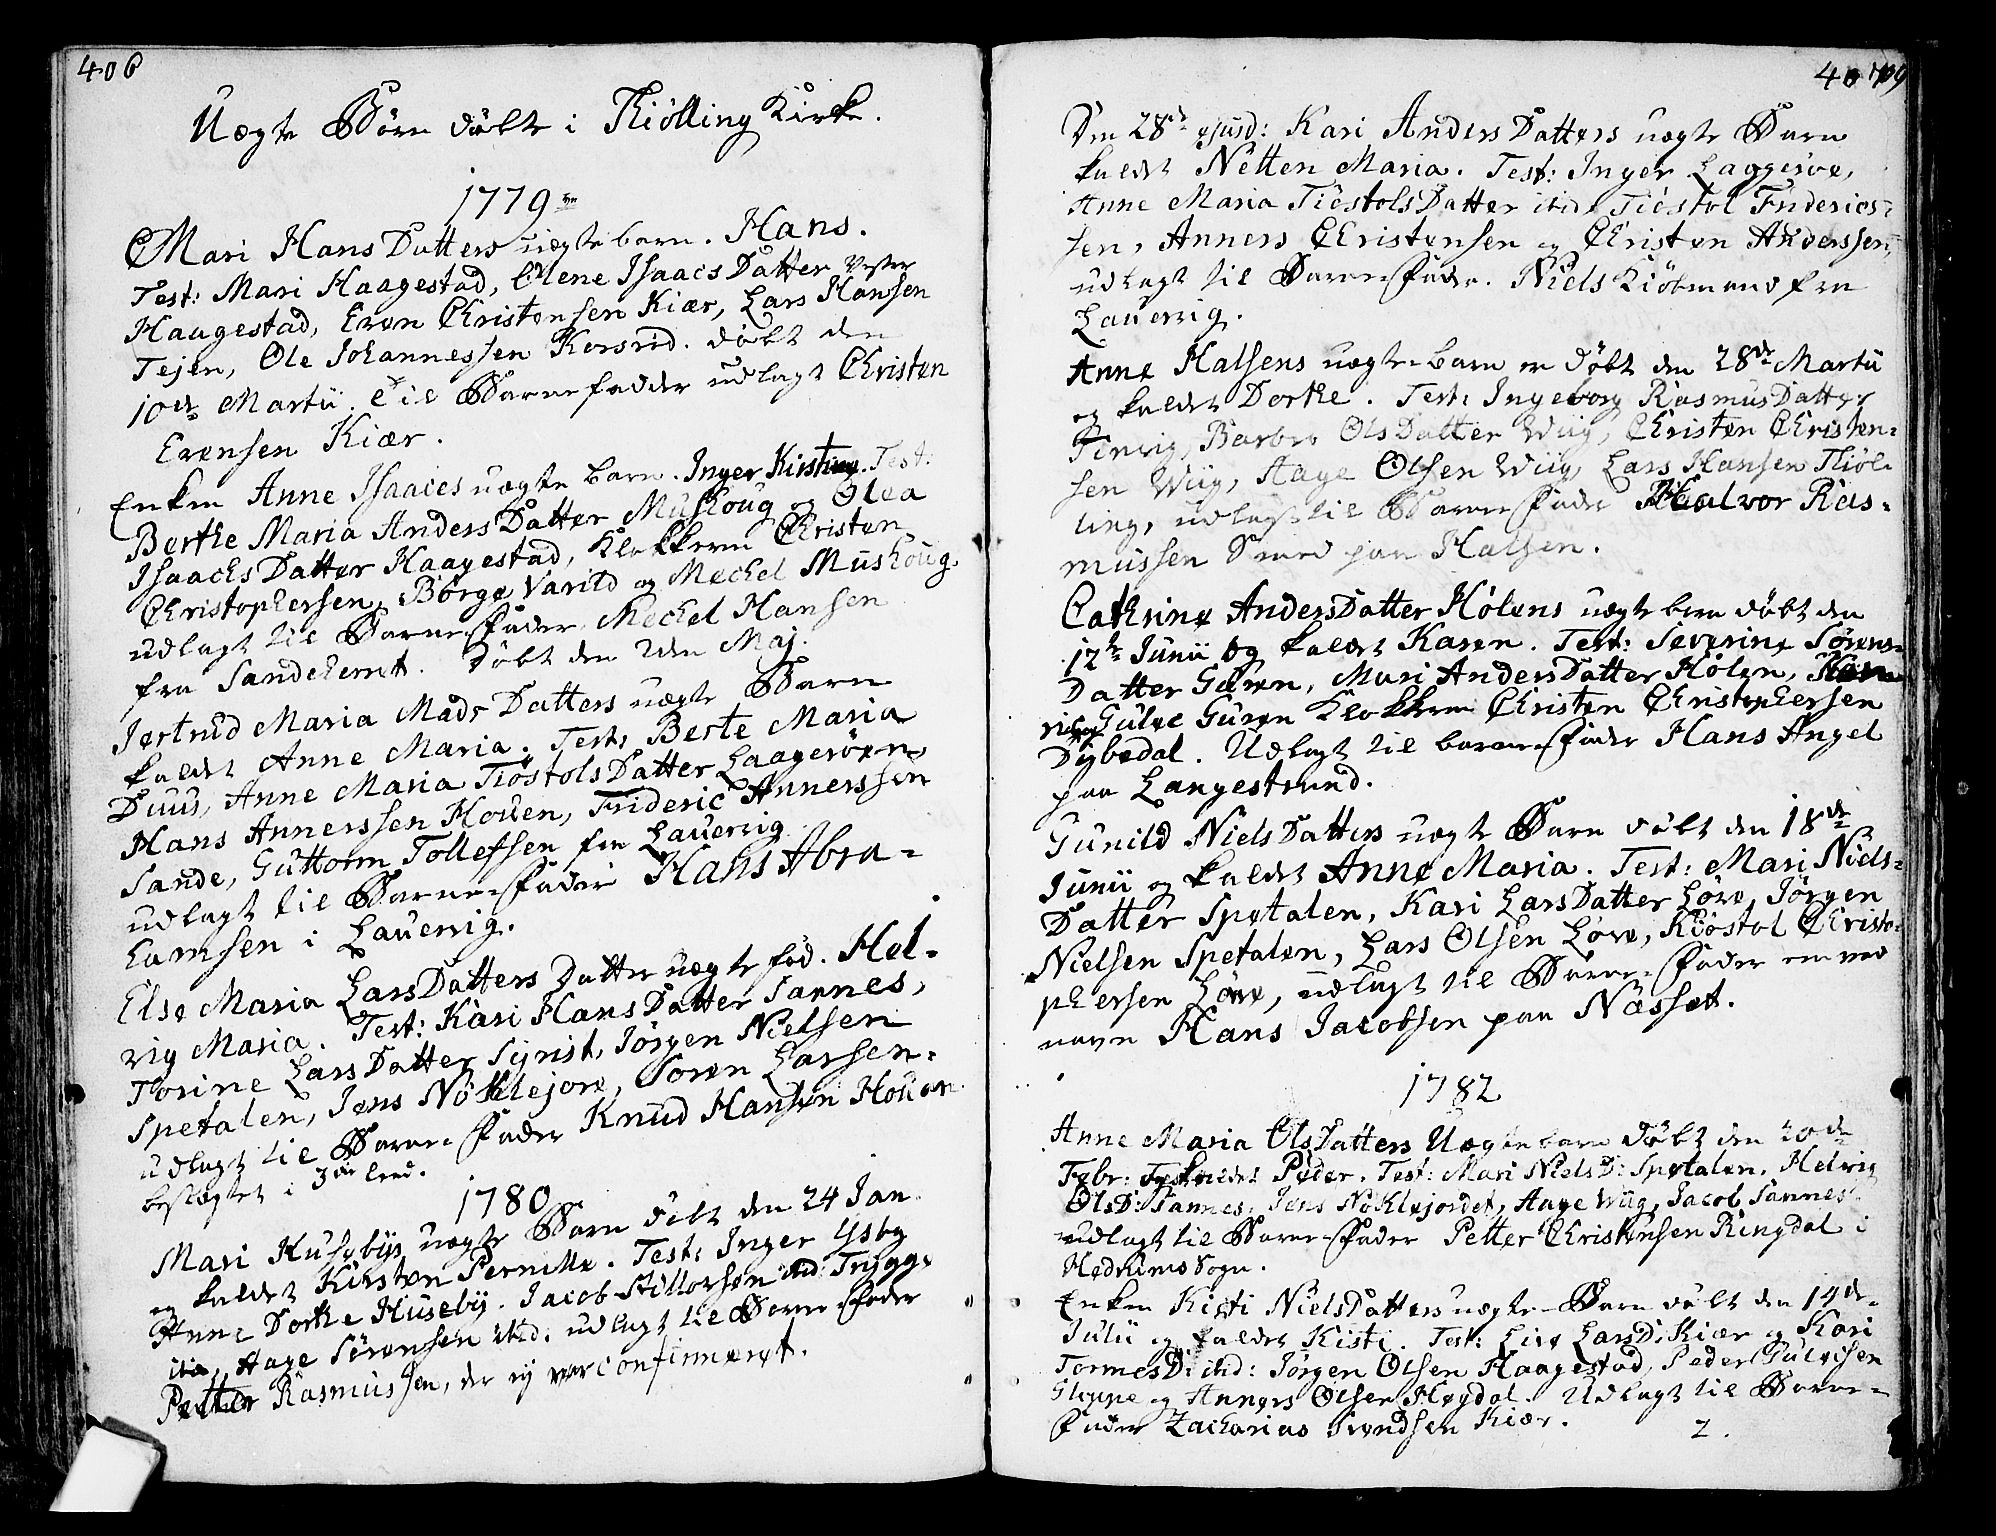 406
Uægte Børn døbte i Tiölling Kirke.
1779
Mari HansDatters uægte barn. Hans.
Test: Mari Haagestad, Olene IsaacsDatter Vester
Haugestad, Even Christensen Kiær, Lars Hansen
Tejen, Ole Johannessen Korsrid. døbt den
10de Martii. Til Barnefadder udlagt Christen
Evensen Kiær.
Enken Anne Isaaces uægte barn. Inger Kirstine. Test:
Berthe Maria AndersDatter Mushoug og Olea
IsaachsDatter Haagestad, Klokkeren Christen
Christophersen, Börge Varild og Mechel Mushoug.
udlagt til Barne-Fader Mechel Hansen
fra Sandeherret. Døbt den 2den Maj.
Jertrud Maria MadsDatters uægte Barn
kaldet Anne Maria. Test: Berte Maria
Duus, Anne Maria TiöstolsDatter Laageröen,
Hans Annerssen Houen, Frideric Annerssen
Sande, Guttorm Tollefsen fra Lauervig
udlagt til Barne-Fader Hans Abra-
hamsen i Lauervig.
Else Maria LarsDatters Datter uægte fød. Hel-
vig Maria. Test: Kari HansDatter Sannes,
Torine LarsDatter Sijrist, Jörgen Nielsen
Spetalen, Jens Nöklejore, Soren Larsen.
udlagt til Barne-Fader Knud Hansen Houen
beslægtet i 3die leed.
1780
Mari Husebÿs uægte Barn døbt den 24 Jan
og kaldet Kirsten Pernille. Test: Inger Ysby
Anne Dorthe Husebÿ. Jacob Stillofsen ibid Trygge
ibid, Aage Sörensen ibid: udlagt til Barne-Fader
Petter Rasmussen, der ej var confirmeret.
407
Den 28de ejusd: Kari AndersDatters uægte Barn
kaldet Netten Maria. Test: Inger Laggeröe,
Anne Maria TiöstolsDatter ibid. Tiöstol Friderics-
sen, Anners Christensen og Christen Anderssen,
udlagt til Barne-Fader. Niels Kiöbmand fra
Lauervig.
Anne Halsens uægte Barn er døbt den 28de Martii
og kaldet Dorthe. Test: Ingeborg RasmusDatter
Barbro OlsDatter Wiig, Christen Christen-
sen Wiig, Aage Olsen Wiig, Lars Hansen Tiöl-
ling, udlagt til Barne-Fader Halvor Ras-
mussen Smed paa Halsen.
Cathrine AndersDatter Hölens uægte barn døbt den
12te Junii og kaldet Karen. Test: Severine Sörens-
Datter Guren, Mari AndersDatter Hölen,
Gulve Guren Klokkeren Christen Christophersen
Dÿbedal. Udlagt til barne-Fader Hans Angel
paa Langestrand.
Gunild NielsDatters uægte Barn døbt den 18de
Junii og kaldet Anne Maria. Test: Mari Niels-
Datter Spetalen, Kari LarsDatter Löve, Jörgen
Nielsen Spetalen, Lars Olsen Löve, Kiöstol Christo-
phersen Löve, udlagt til Barne-Fader em ved
navn Hans Jacobsen paa Næsset.
1782
Anne Maria OlsDatters Uægte barn døbt den 20de
Febr: kaldet Peder. Test: Mari NielsD: Spetalen, Helvig
OlsD: Sannes, Jens Nöklejordet, Aage Wiig, Jacob Sannes
udlagt til Barne-Fader Petter Christensen Ringdal i
Hedrums Sogn.
Enken Kisti NielsDatters uægte Barn døbt den 14de
Julii og kaldet Kisti. Test: Live LarsD: Kiær og Kari
TormesD: ibid: Jörgen Olsen Haagestad, Peder Gulvisen
Gloppe og Anners Olsen Høgdal. Udlagt til Barne-
Fader Zacharias Svendsen Kiær.
2.